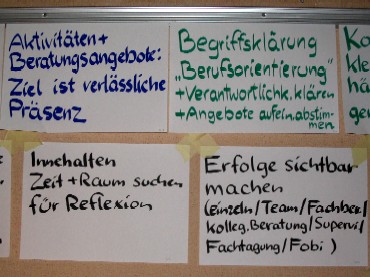 Aktivitäten +
Beratungsangebote:
Ziel ist verlässliche
Präsenz
Begriffsklärung
„Berufsorientierung"
+ Verantwortlichk. klären
+ Angebote aufein. abstim-
men
Ko
kle
hä
ge
Innehalten
Zeit + Raum suchen
für Reflexion
Erfolge sichtbar
machen
(einzeln / Team / Fachber. /
Kolleg. Beratung / Supervi /
Fachtagung / Fobi )